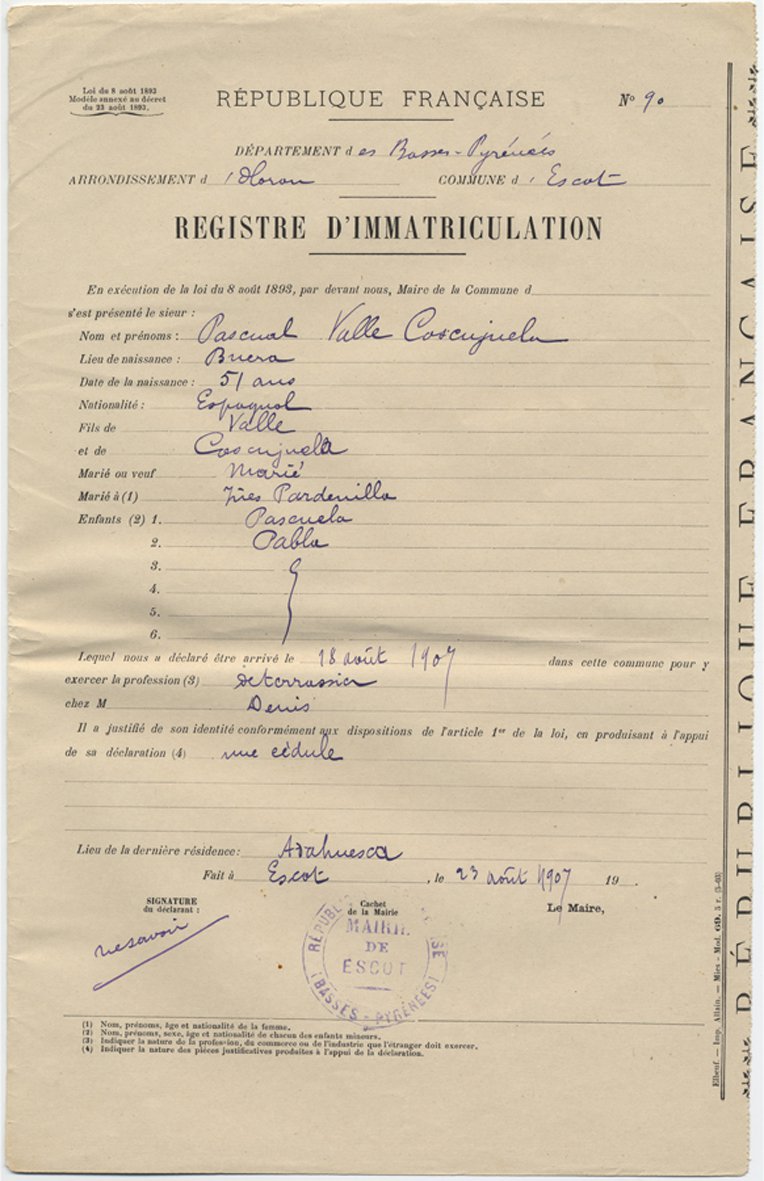 Loi du 8 août 1893
Modèle annexé au décret
du 23 août 1893.
RÉPUBLIQUE FRANÇAISE
N° 90
DÉPARTEMENT des Basses-Pyrénées
ARRONDISSEMENT d'Oloron COMMUNE d'Escot
REGISTRE D'IMMATRICULATION
En exécution de la loi du 8 août 1893, par devant nous, Maire de la Commune d
s'est présenté le sieur :
Nom et prénoms : Pascual Valle Coscujuela
Lieu de naissance : Buera
Date de la naissance : 51 ans
Nationalité : Espagnol
Fils de Valle
et de Coscujuela
Marié ou veuf Marié
Marié à (1) Inès Pardenilla
Enfants (2) 1. Pascuela
2. Pabla
3.
4.
5.
6.
Lequel nous a déclaré être arrivé le 18 août 1907 dans cette commune pour y
exercer la profession (3) de terrassier
chez M Denis
Il a justifié de son identité conformément aux dispositions de l'article 1er de la loi, en produisant à l'appui
de sa déclaration (4) une cédule
Lieu de la dernière résidence : Adahuesca
Fait à Escot, le 23 août 1907 19
SIGNATURE
du déclarant :
ne savoir
Cachet
de la Mairie
Le Maire,
MAIRIE
DE
ESCOT
(BASSES-PYRÉNÉES)
(1) Nom, prénoms, âge et nationalité de la femme.
(2) Nom, prénoms, sexe, âge et nationalité de chacun des enfants mineurs.
(3) Indiquer la nature de la profession, du commerce ou de l'industrie que l'étranger doit exercer.
(4) Indiquer la nature des pièces justificatives produites à l'appui de la déclaration.
Elbeuf. — Imp. Allain. — Mies - Mod. 69. 5 r. (5-03)
RÉPUBLIQUE FRANÇAISE